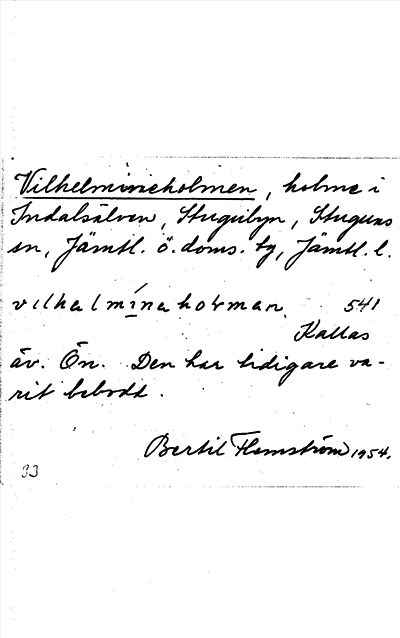 Vilhelmineholmen, holme i
Indalsälven, Stugubyn, Stuguns
sn, Jämtl. ö. doms. tg, Jämtl. l.
vılhelmína holman. 541
Kallas
äv. Ön. Den har tidigare va-
rit bebodd.
Bertil Flemström 1954.
33